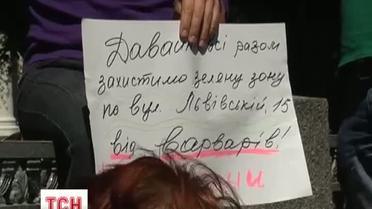 Давайте всі разом
захистимо зелену зону
по вул. Львівській, 15
від варварів!
ТСН